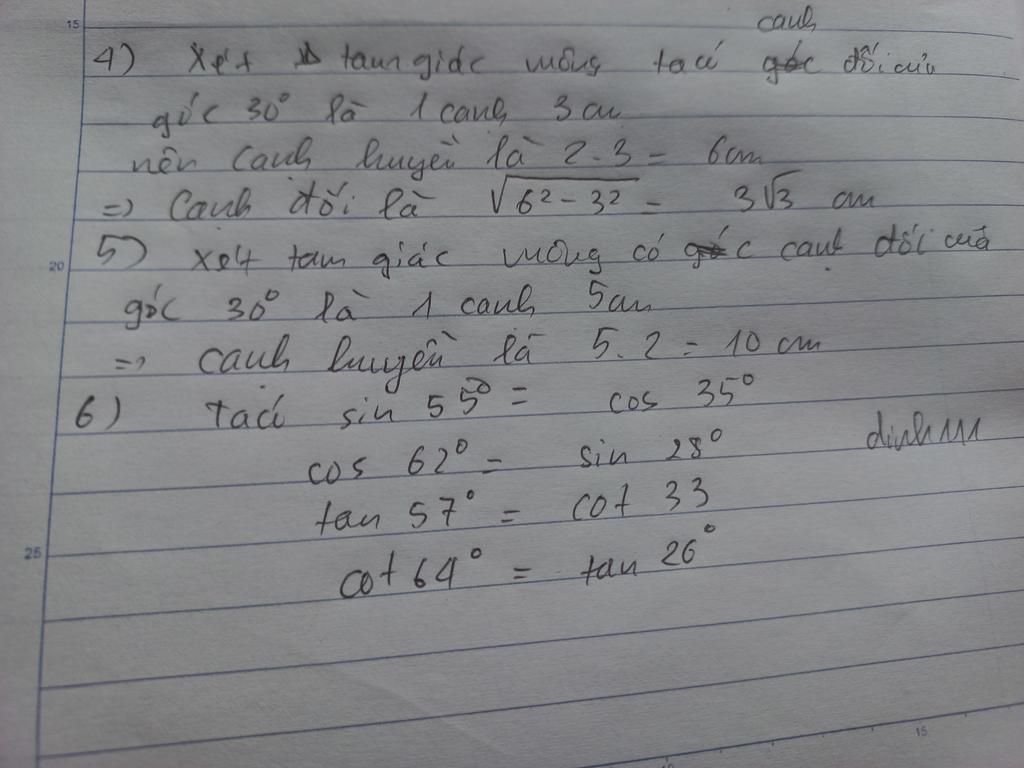 15
canh
4) xét tam giác vuông ta có góc đối của
góc 30° là 1 canh 3 cm
nên canh huyền là 2.3 = 6cm
=> Canh đối là √6² - 3² = 3√3 cm
5) xét tam giác vuông có góc canh đối của
20
góc 30° là 1 canh 5cm
=> canh huyền là 5.2 = 10 cm
6) ta có sin 55° = cos 35°
cos 62° = sin 28°
tan 57° = cot 33
25
cot 64° = tan 26°
15